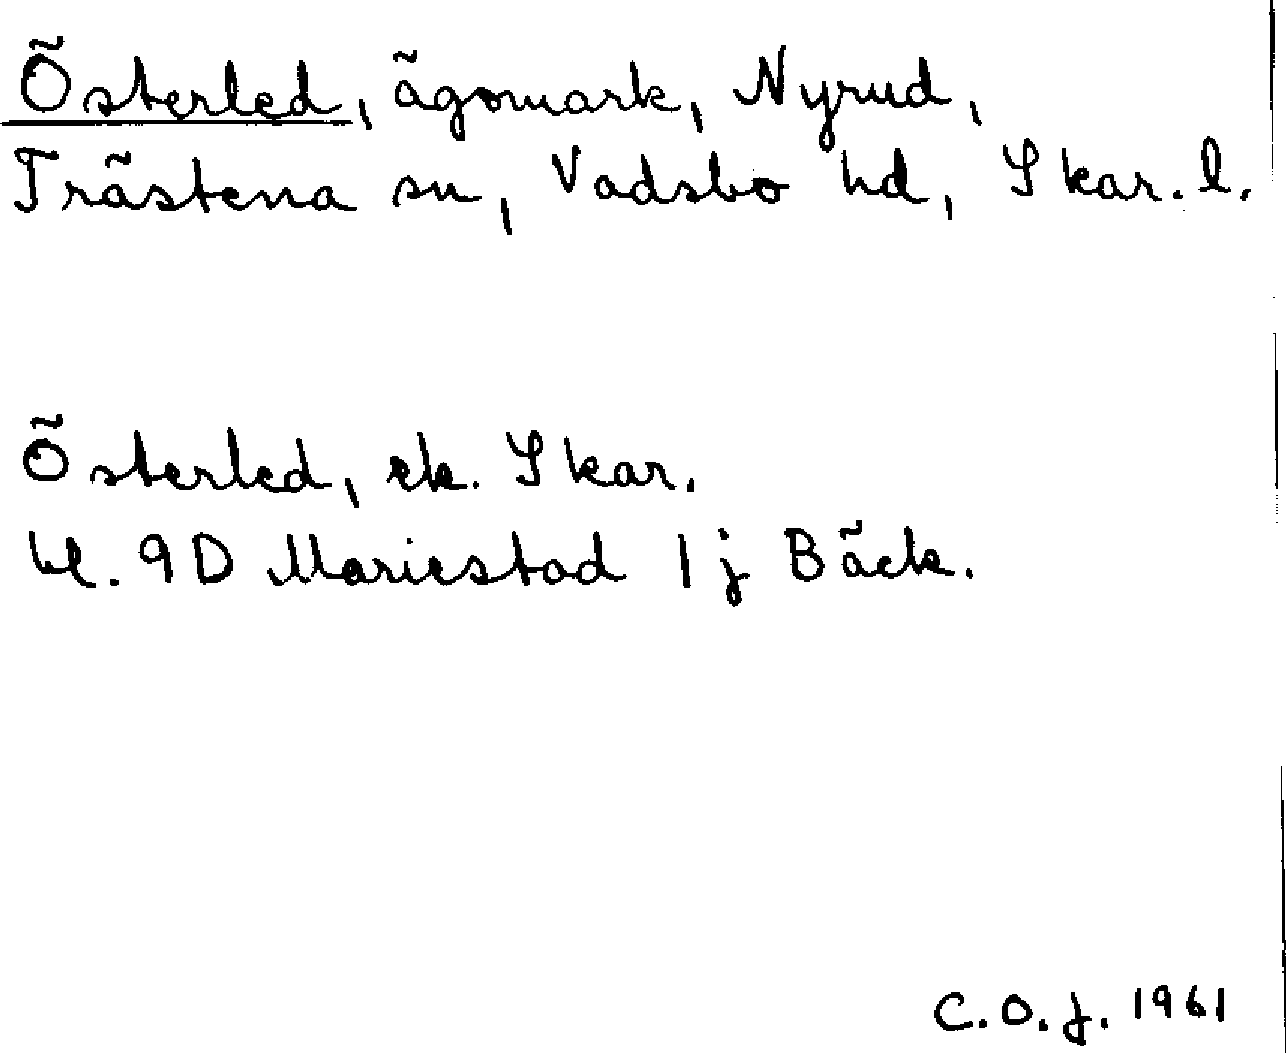 Österled, ägomark, Nyrud,
Trästena sn, Vadsbo hd, Skar. l.
Österled, ek. Skar.
bl. 9D Mariestad 1j Bäck.
C.O.J. 1961